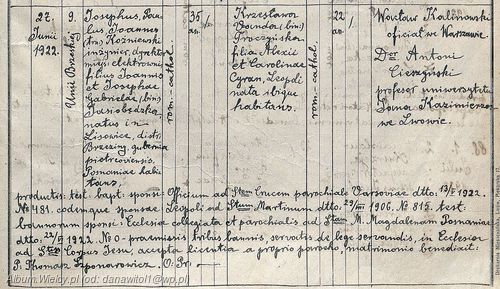 27.
Junii
1922.
9.
Unii Brzeskiej
Josephus, Pau-
lus Joannes
(trn) Koźniewski
inżynier, dyrektor
miejs elektrowni
filius Joannis
et Josephae
Gabrielae (bin)
Jasiobędzka,
natus in
Lisowice, distr.
Brzeziny, gubernia
piotrcoviensis.
Posnaniae habi-
tans.
rom.-cathol.
35
an.
1
Krzesława
Bondor (bin)
Groczyńska
filia Alexii
et Carolinae
Cyran, Leopoli
nata ibique
habitans.
rom.-cathol.
22
an.
1.
Wacław Kalinowski
oficiał w Warszawie
Dr Antoni
Cieszyński
profesor uniwerzytetu
Jana Kazimierzow.
we Lwowie.
productis: test. bapt: sponsi: Officium ad Stam Crucem parochiale Varsoviae dtto: 13/V 1922.
No 481. eodemque sponsae Leopoli ad Stum Martinum dtto: 1906. No 815. test:
bannorum sponsi: Ecclesia collegiata et parochialis ad Stam M. Magdalenam Posnaniae
dtto: 22/VI 1922. No 0 - praemissis tribus bannis, servatis de lege servandis, in Ecclesia
ad Stmum Corpus Jesu, accepta licentia a proprio parocho, matrimonio benedixit:
P. Thomas Szponarowicz. O: Pr:
Album.Wielcy.pl od: danawitol1@wp.pl